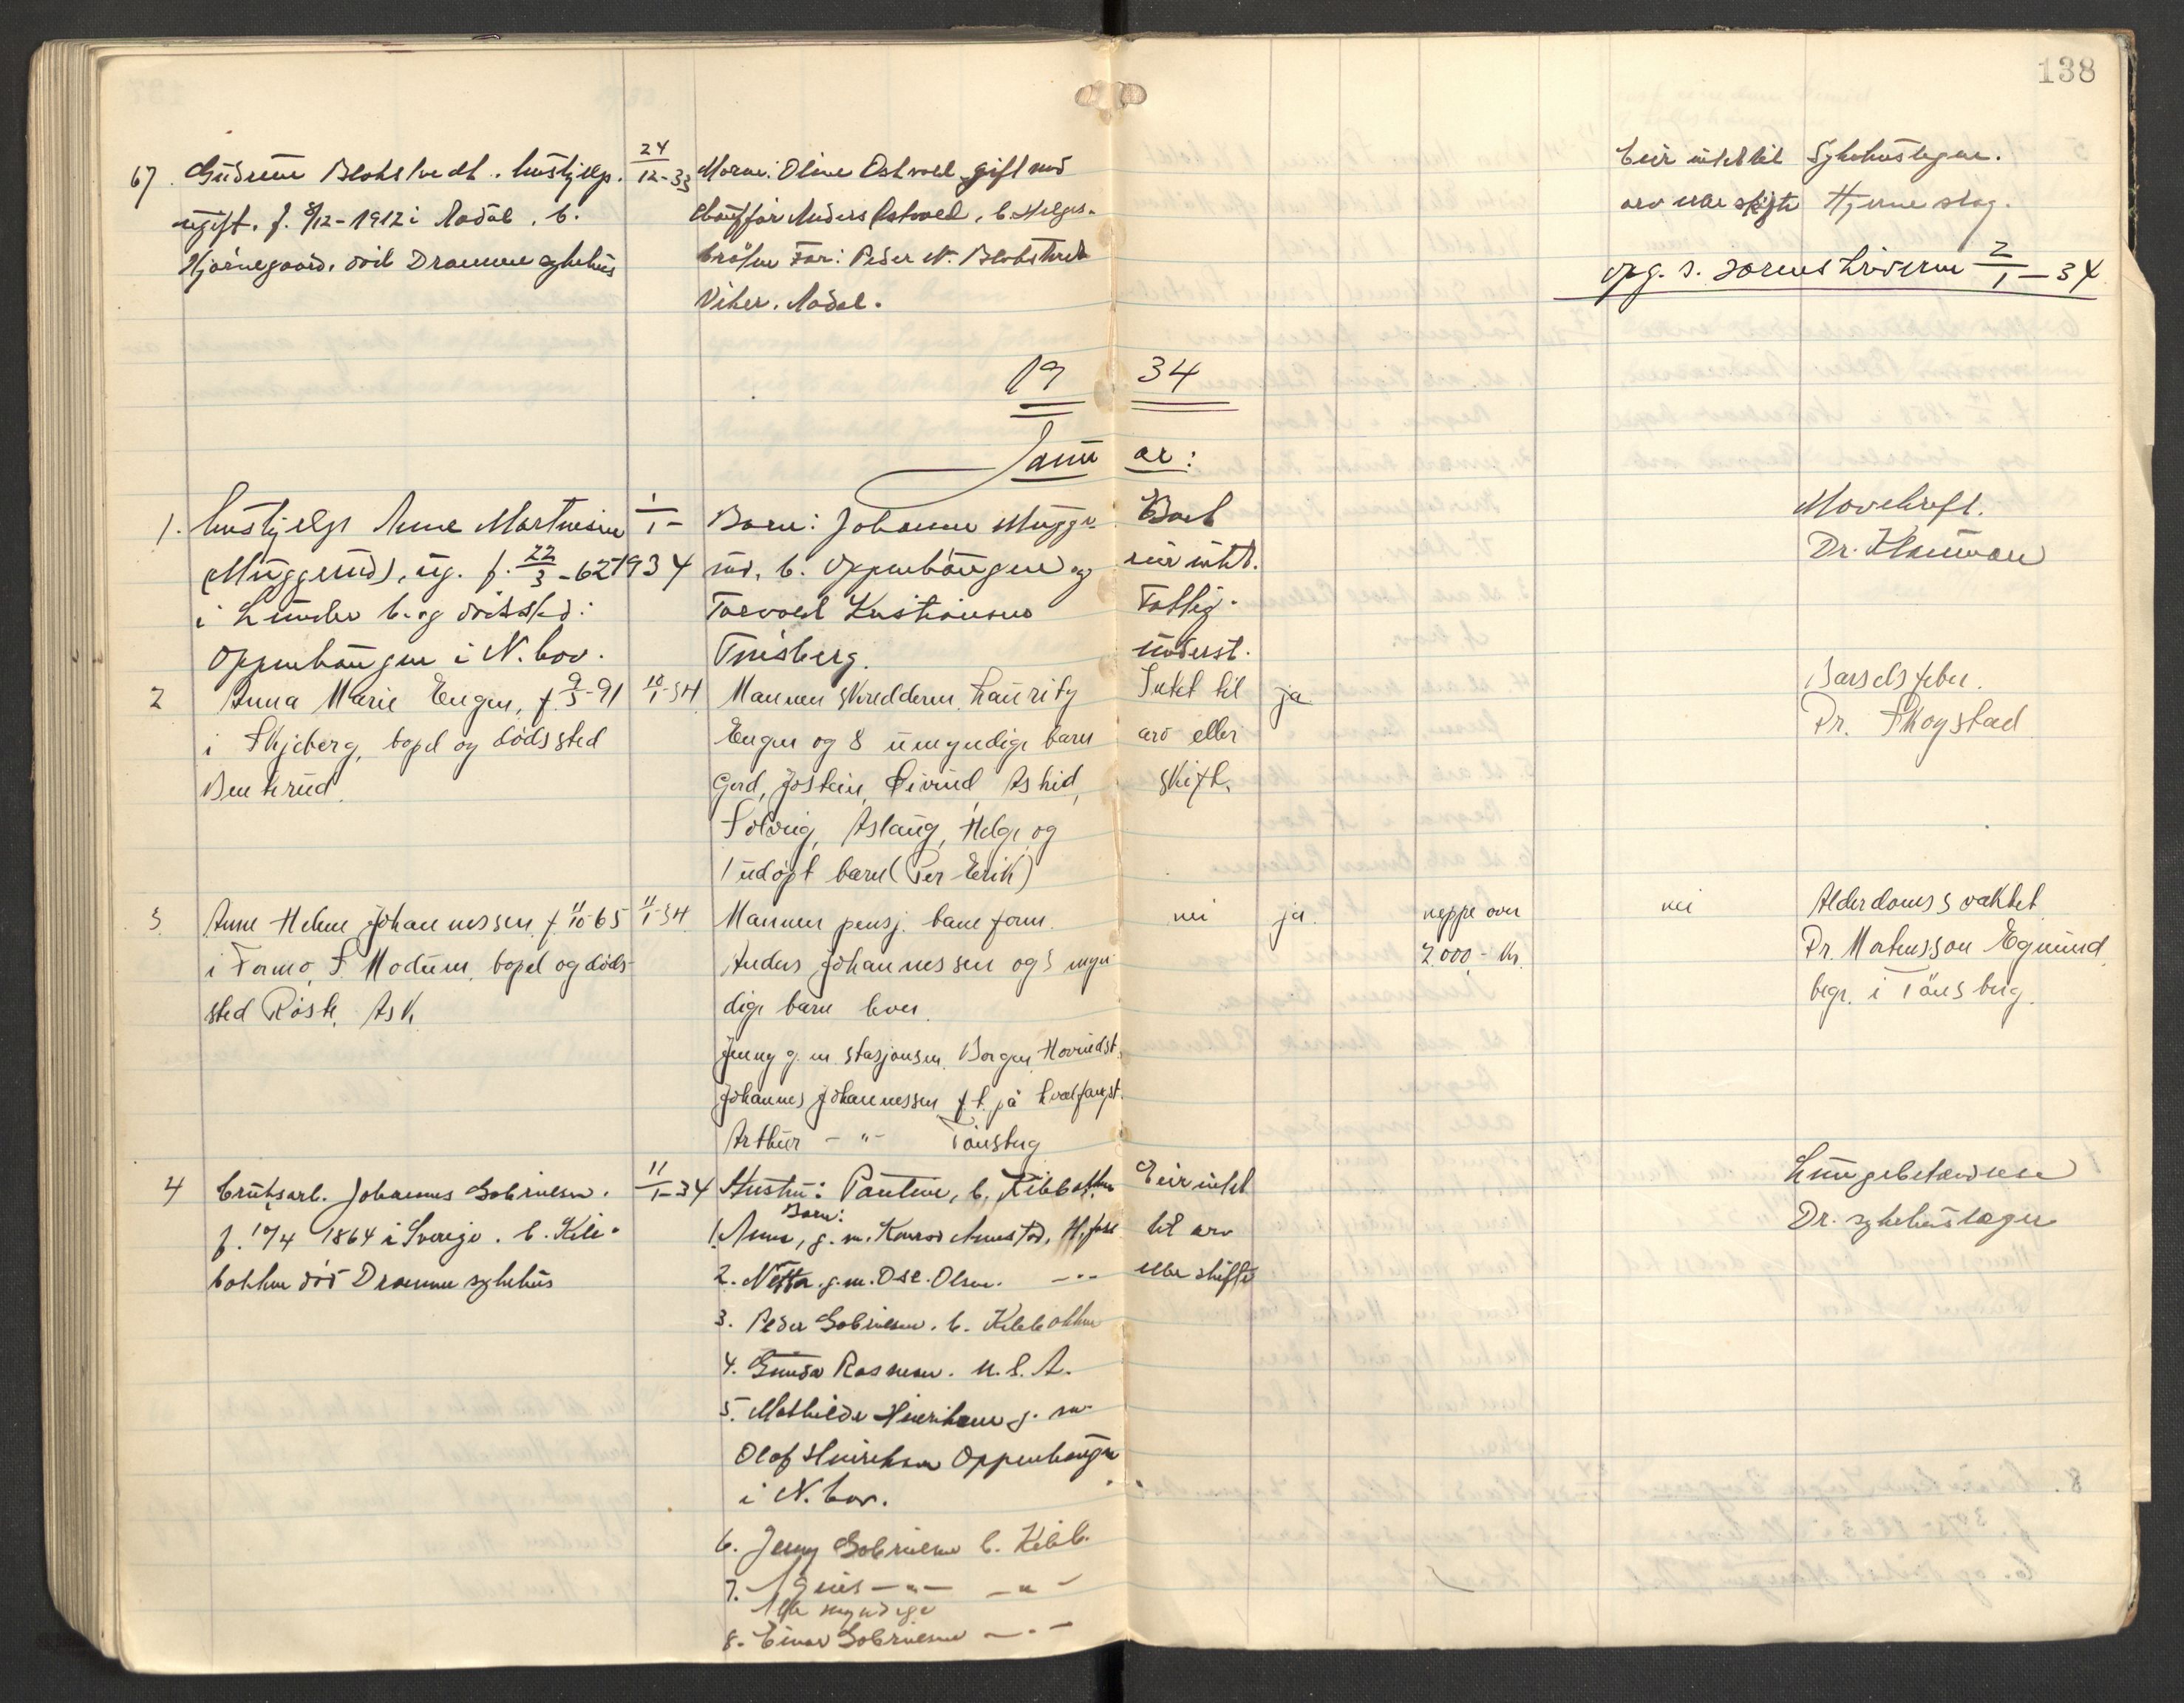 138
67. Gudrun Blokstvedt. hushjelp.
ugift. f. 8/12-1912 i Aadal. b.
Hjørnegaard. død Drammen sykehus
24/12-33
Moren: Oline Ostvold gift med
chauffør Anders Ostvold, b. Helges-
Far: Peder N.
Viker. Aadal.
Eier intet til
arv eller skifte
Sykehuslegen.
Hjerneslag.
opg. s. 2/1-34
19 34
Januar:
1. hushjelp Anne Martinsen
(Muggerud), ug. f. 22/3-62
i Lunder b. og dødssted:
Oppenhaugen i N.hov.
1/1-1934
Barn: Johanne Mugge-
rud, b. Oppenhaugen og
Torvald Kristiansen
Tønsberg.
Boet
eier intet.
Fattig-
underst.
Mavekreft.
Dr.
2 Anna Marie Engen, f. 9/3-91
i Skjeberg, bopel og dødssted
Benterud
10/1-34
Mannen skredderen Lauritz
Engen og 8 umyndige barn
Gerd, Jostein, Eivind, Astrid,
Solveig, Aslaug, Helge og
1 udøpt barn (Per Erik)
Intet til
arv eller
skifte
ja
Barselsfeber.
Dr. Skogstad
3. Anne Helene Johannessen f. 11/10 65
i Formo, S. Modum, bopel og døds-
sted Røste, Ask
11/1-34
Mannen pensj. baneform.
Anders Johannessen og 3 myn-
dige barn lever.
Jenny g. m. stasjonsm. Borgen Hovindst.
Johannes Johannessen f.t. på hvalfangst.
Arthur - " - Tønsberg
nei
ja
neppe over
2.000 - kr.
nei
Alderdomssvakhet
Dr. Mortensson Egnund
begr. i Tønsberg.
4 bruksarb. Johannes Gabrielsen.
f. 10/4 1864 i Sverige. b. Kile-
bakken død Drammen sykehus
11/1-34
Hustru: Pauline, b. Kilebakken
Barn:
1. Anna, g. m. Konrad
2. Netta g. m. Ose. Olsen. - " -
3. Peder Gabrielsen. b. Kilebakken
4. Gunda Rasmusen. U.S.A.
5. Mathilde Henriksen g. m.
Olaf Henriksen Oppenhaugen
i N.hov.
6. Jenny Gabrielsen b. Kileb.
7. Agnes - " - - " -
Alle myndige
8. Einar Gabrielsen - " -
Eier intet
til arv
eller skifte
Lungebetendelse
Dr. sykehuslægen